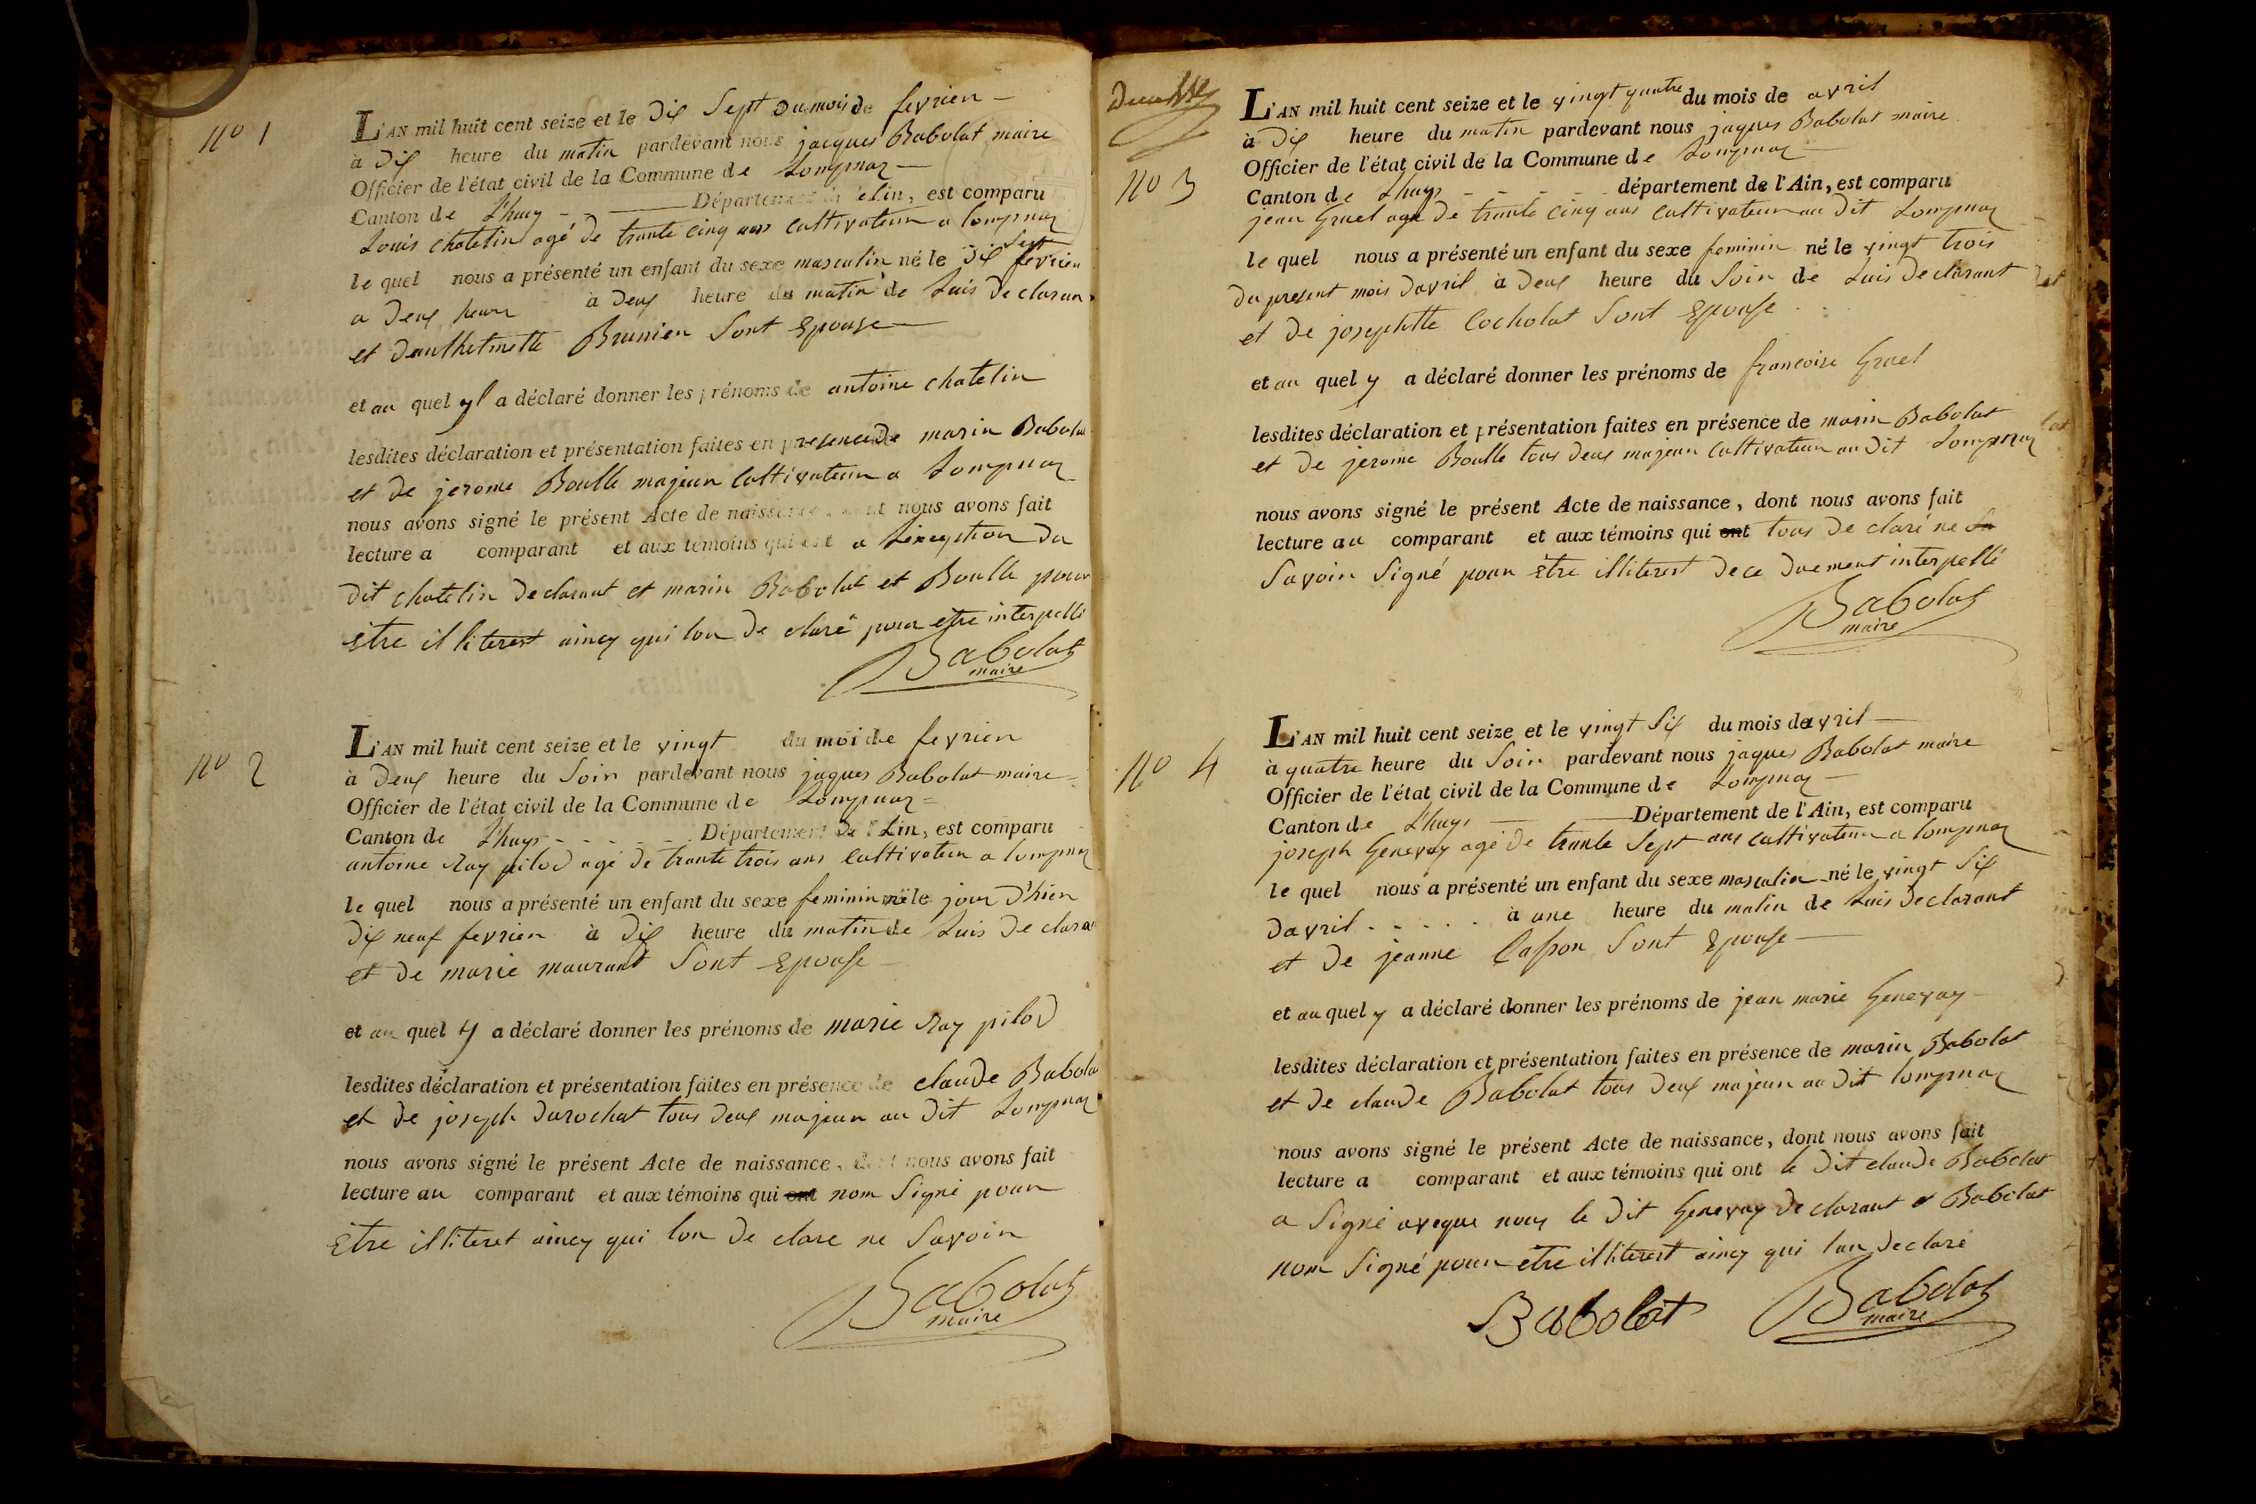 No 1
L'AN mil huit cent seize et le dix sept du mois de fevrier
à dix heure du matin pardevant nous jacques Babolat maire
Officier de l'état civil de la Commune de Lompnaz
Canton de L'huys Département de l'Ain, est comparu
Louis chatelin agé de trante cinq ans cultivateur a lompnaz
le quel nous a présenté un enfant du sexe masculin né le dix sept fevrier
a deux heure à deux heure du matin de Luis declarant
et dauthelmette Brunier Sont Epouse
et au quel yl a déclaré donner les prénoms de antoine chatelin
lesdites déclaration et présentation faites en presence de marin Babolat
et de jerome Boulle majeur Cultivateur a Lompnaz
nous avons signé le présent Acte de naissance, dont nous avons fait
lecture a comparant et aux témoins qui ont a Lexeption du
dit chatelin declarant et marin Babolat et Boulle pour
Etre illiterest aincy qui lon de claré pour etre interpellé
Babolat
maire
No 2
L'AN mil huit cent seize et le vingt du moi de fevrier
à deux heure du Soir pardevant nous jaques Babolat maire
Officier de l'état civil de la Commune de Lompnaz
Canton de L'huys Département de l'Ain, est comparu
antoine Ray pilod agé de trante trois ans Cultivateur a lompnaz
le quel nous a présenté un enfant du sexe feminin né le jour d'hier
dix neuf fevrier à dix heure du matin de Luis de claran
et de marie maurant Sont Epouse
et au quel y a déclaré donner les prénoms de marie Ray pilod
lesdites déclaration et présentation faites en présence de claude Babolat
et de joseph durochat tous deux majeur au dit Lompnaz
nous avons signé le présent Acte de naissance, dont nous avons fait
lecture au comparant et aux témoins qui ont nom Signé pour
Etre illiteret aincy qui lon de clare ne Savoir
Babolat
maire
No 3
L'AN mil huit cent seize et le vingt quatre du mois de avril
à dix heure du matin pardevant nous jaques Babolat maire
Officier de l'état civil de la Commune de Lompnaz
Canton de L'huys département de l'Ain, est comparu
jean Gruel agé de trante cinq ans Cultivateur au dit Lompnaz
le quel nous a présenté un enfant du sexe feminin né le vingt trois
du present mois davril à deux heure du Soir de Luis declarant
et de josephtte Cocholat Sont Epouse
et au quel y a déclaré donner les prénoms de francoise Gruel
lesdites déclaration et présentation faites en présence de marin Babolat
et de jerome Boulle tous deux majeur Cultivateur au dit Lompnaz
nous avons signé le présent Acte de naissance, dont nous avons fait
lecture au comparant et aux témoins qui ont tous de claré ne Sa
Savoir Signé pour Etre illiterest de ce duement interpellé
Babolat
maire
No 4
L'AN mil huit cent seize et le vingt Six du mois davril
à quatre heure du Soir pardevant nous jaques Babolat maire
Officier de l'état civil de la Commune de Lompnaz
Canton de L'huys Département de l'Ain, est comparu
joseph Genevay agé de trante Sept ans Cultivateur a lompnaz
le quel nous a présenté un enfant du sexe masculin né le vingt Six
davril à une heure du matin de Luis declarant
et de jeanne Casson Sont Epouse
et au quel y a déclaré donner les prénoms de jean marie Genevay
lesdites déclaration et présentation faites en présence de marin Babolat
et de claude Babolat tous deux majeur au dit lompnaz
nous avons signé le présent Acte de naissance, dont nous avons fait
lecture a comparant et aux témoins qui ont le dit claude Babolat
a Signé aveque nous le dit Genevay declarant et Babolat
nom Signé pour etre illiterest aincy qui lon declaré
Babolat
Babolat
maire